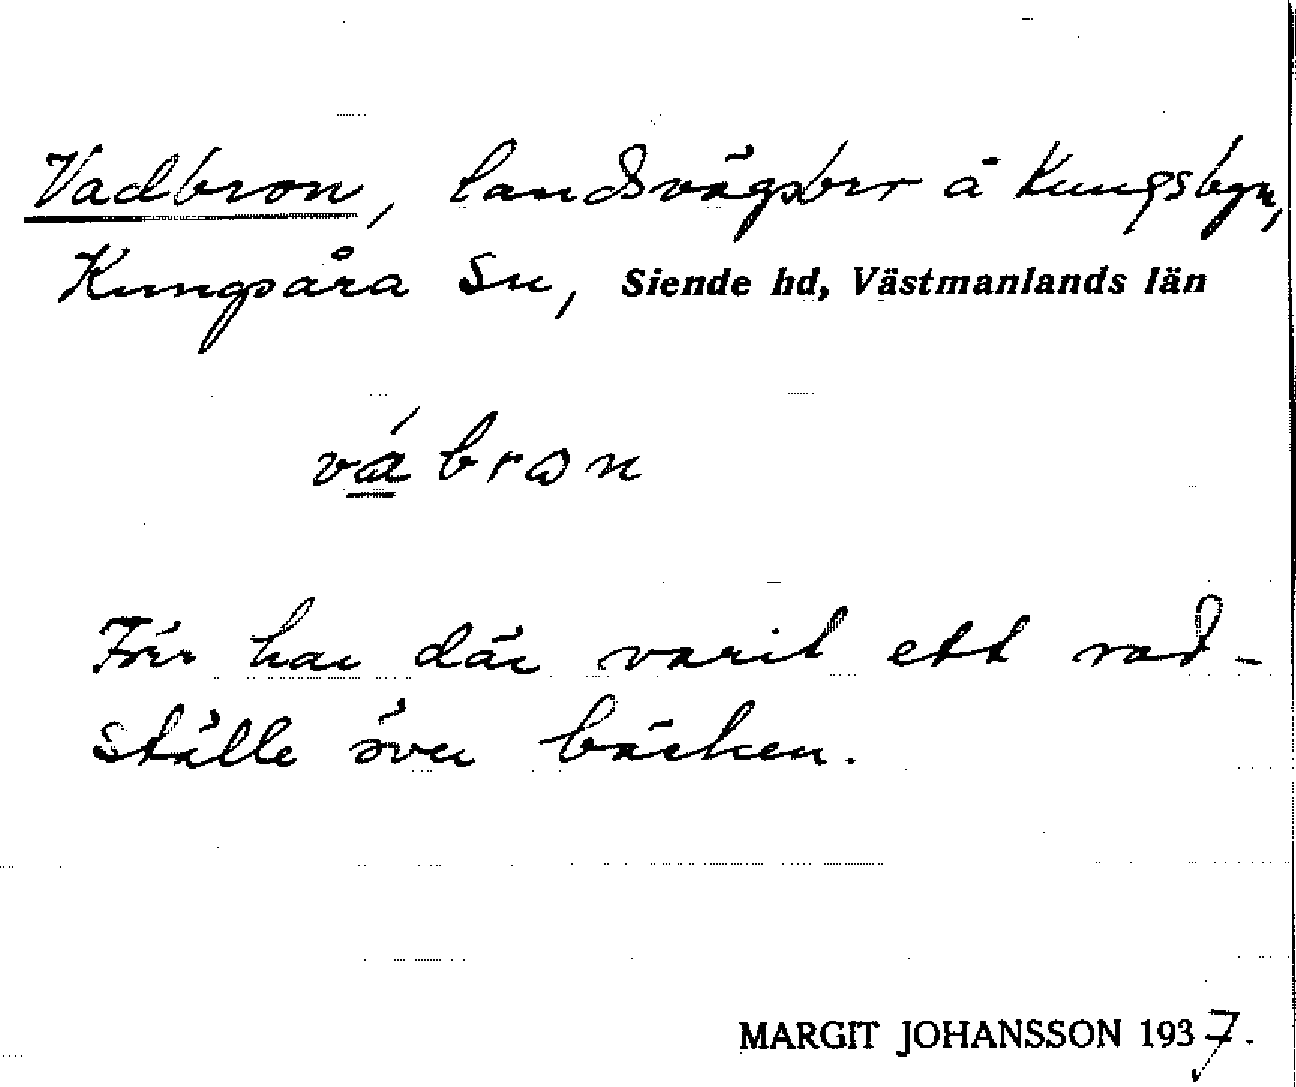 Vadbron, landsvägsbro å Kungsbyn,
Kungsåra sn, Siende hd, Västmanlands län
vá bron
Förr har där varit ett vad-
ställe över bäcken.
MARGIT JOHANSSON 1937.